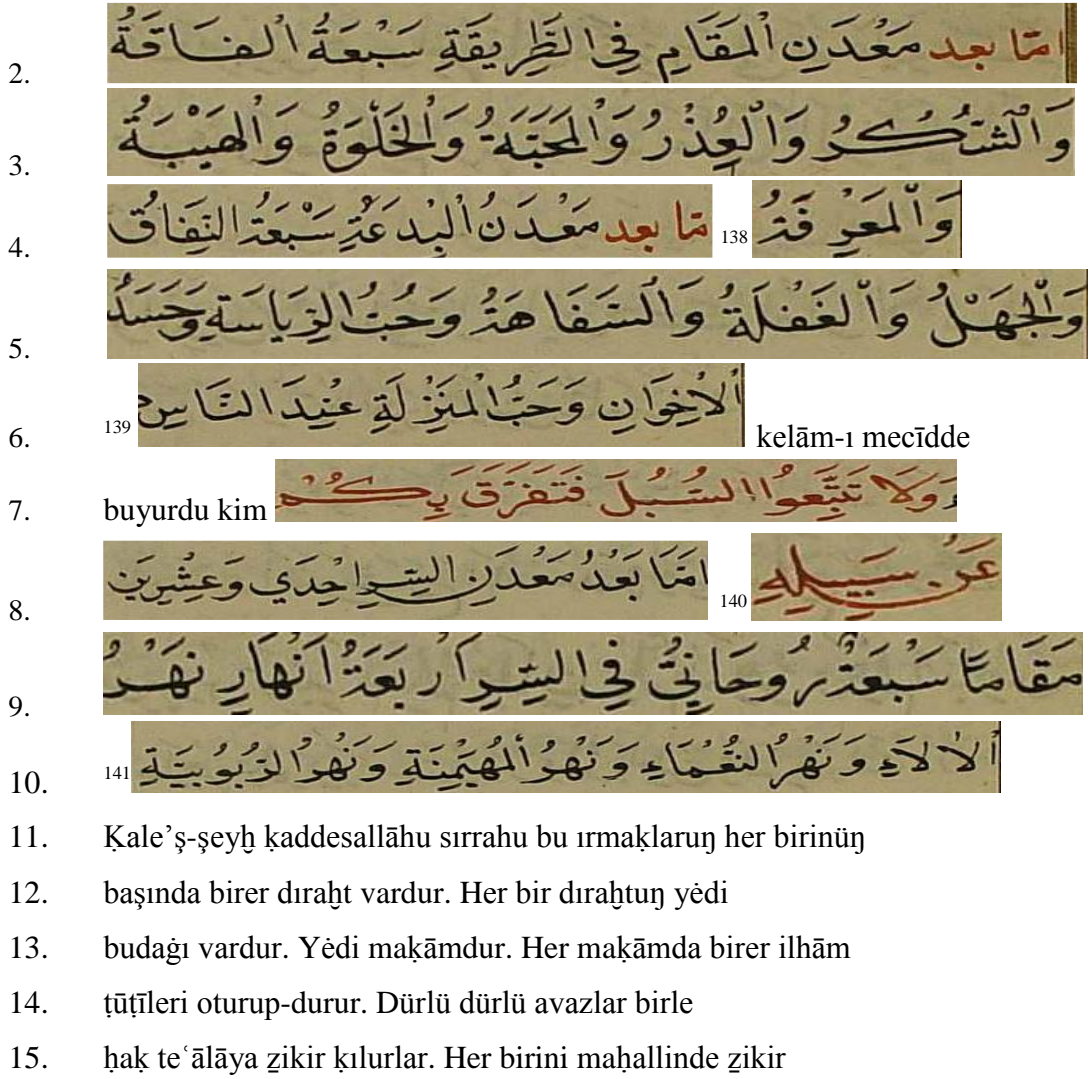 2. امّا بعد مَعْدَنِ اْلمَقَامِ فِي الطَّرِيقَةِ سَبْعَةُ اْلفَاقَةُ
3. وَالْشُّكْرُ وَالْعُذْرُ وَاْلمَحَبَّةُ وَالْخَلْوَةُ وَالْهَيْبَةُ
4. وَاْلمَعْرِفَةُ 138 مّا بعد مَعْدَنُ اْلبِدعَةِ سَبْعَةُ النِّفَاقُ
5. وَالْجَهْلُ وَاْلغَفْلَةُ وَالْسَّفَاهَةُ وَحُبُّ الرِّيَاسَةِ وَحَسَدُ
6. اْلاِخْوَانِ وَحَبُّ الْمَنْزِلَةِ عِنْدَ النَّاسِ 139 kelām-ı mecīdde
7. buyurdu kim وَلَا تَتَّبِعُوا السُّبُلَ فَتَفَرَّقَ بِكُمْ
8. عَنْ سَبِيلِهِ 140 امَّا بَعْدُ مَعْدَنِ السِّرِ اِحْدَي وَعِشْرِينَ
9. مَقَامًا سَبْعَةُ رُوحَانِيٌّ فِي السِّرِ اَرْبَعَةُ اَنْهَارٍ نَهْرُ
10. اْلاٰلاَءِ وَنَهْرُ النُّعْمَاءِ وَنَهْرُ اْلمُهَيْمِنَةِ وَنَهْرُ الرُّبُوبِيَّةِ 141
11. Ḳale’ş-şeyḫ ḳaddesallāhu sırrahu bu ırmaḳlaruŋ her birinüŋ
12. başında birer dıraḫt vardur. Her bir dıraḫtuŋ yėdi
13. budaġı vardur. Yėdi maḳāmdur. Her maḳāmda birer ilhām
14. ṭūṭīleri oturup-durur. Dürlü dürlü avazlar birle
15. ḥaḳ teʿālāya ẕikir ḳılurlar. Her birini maḥallinde ẕikir